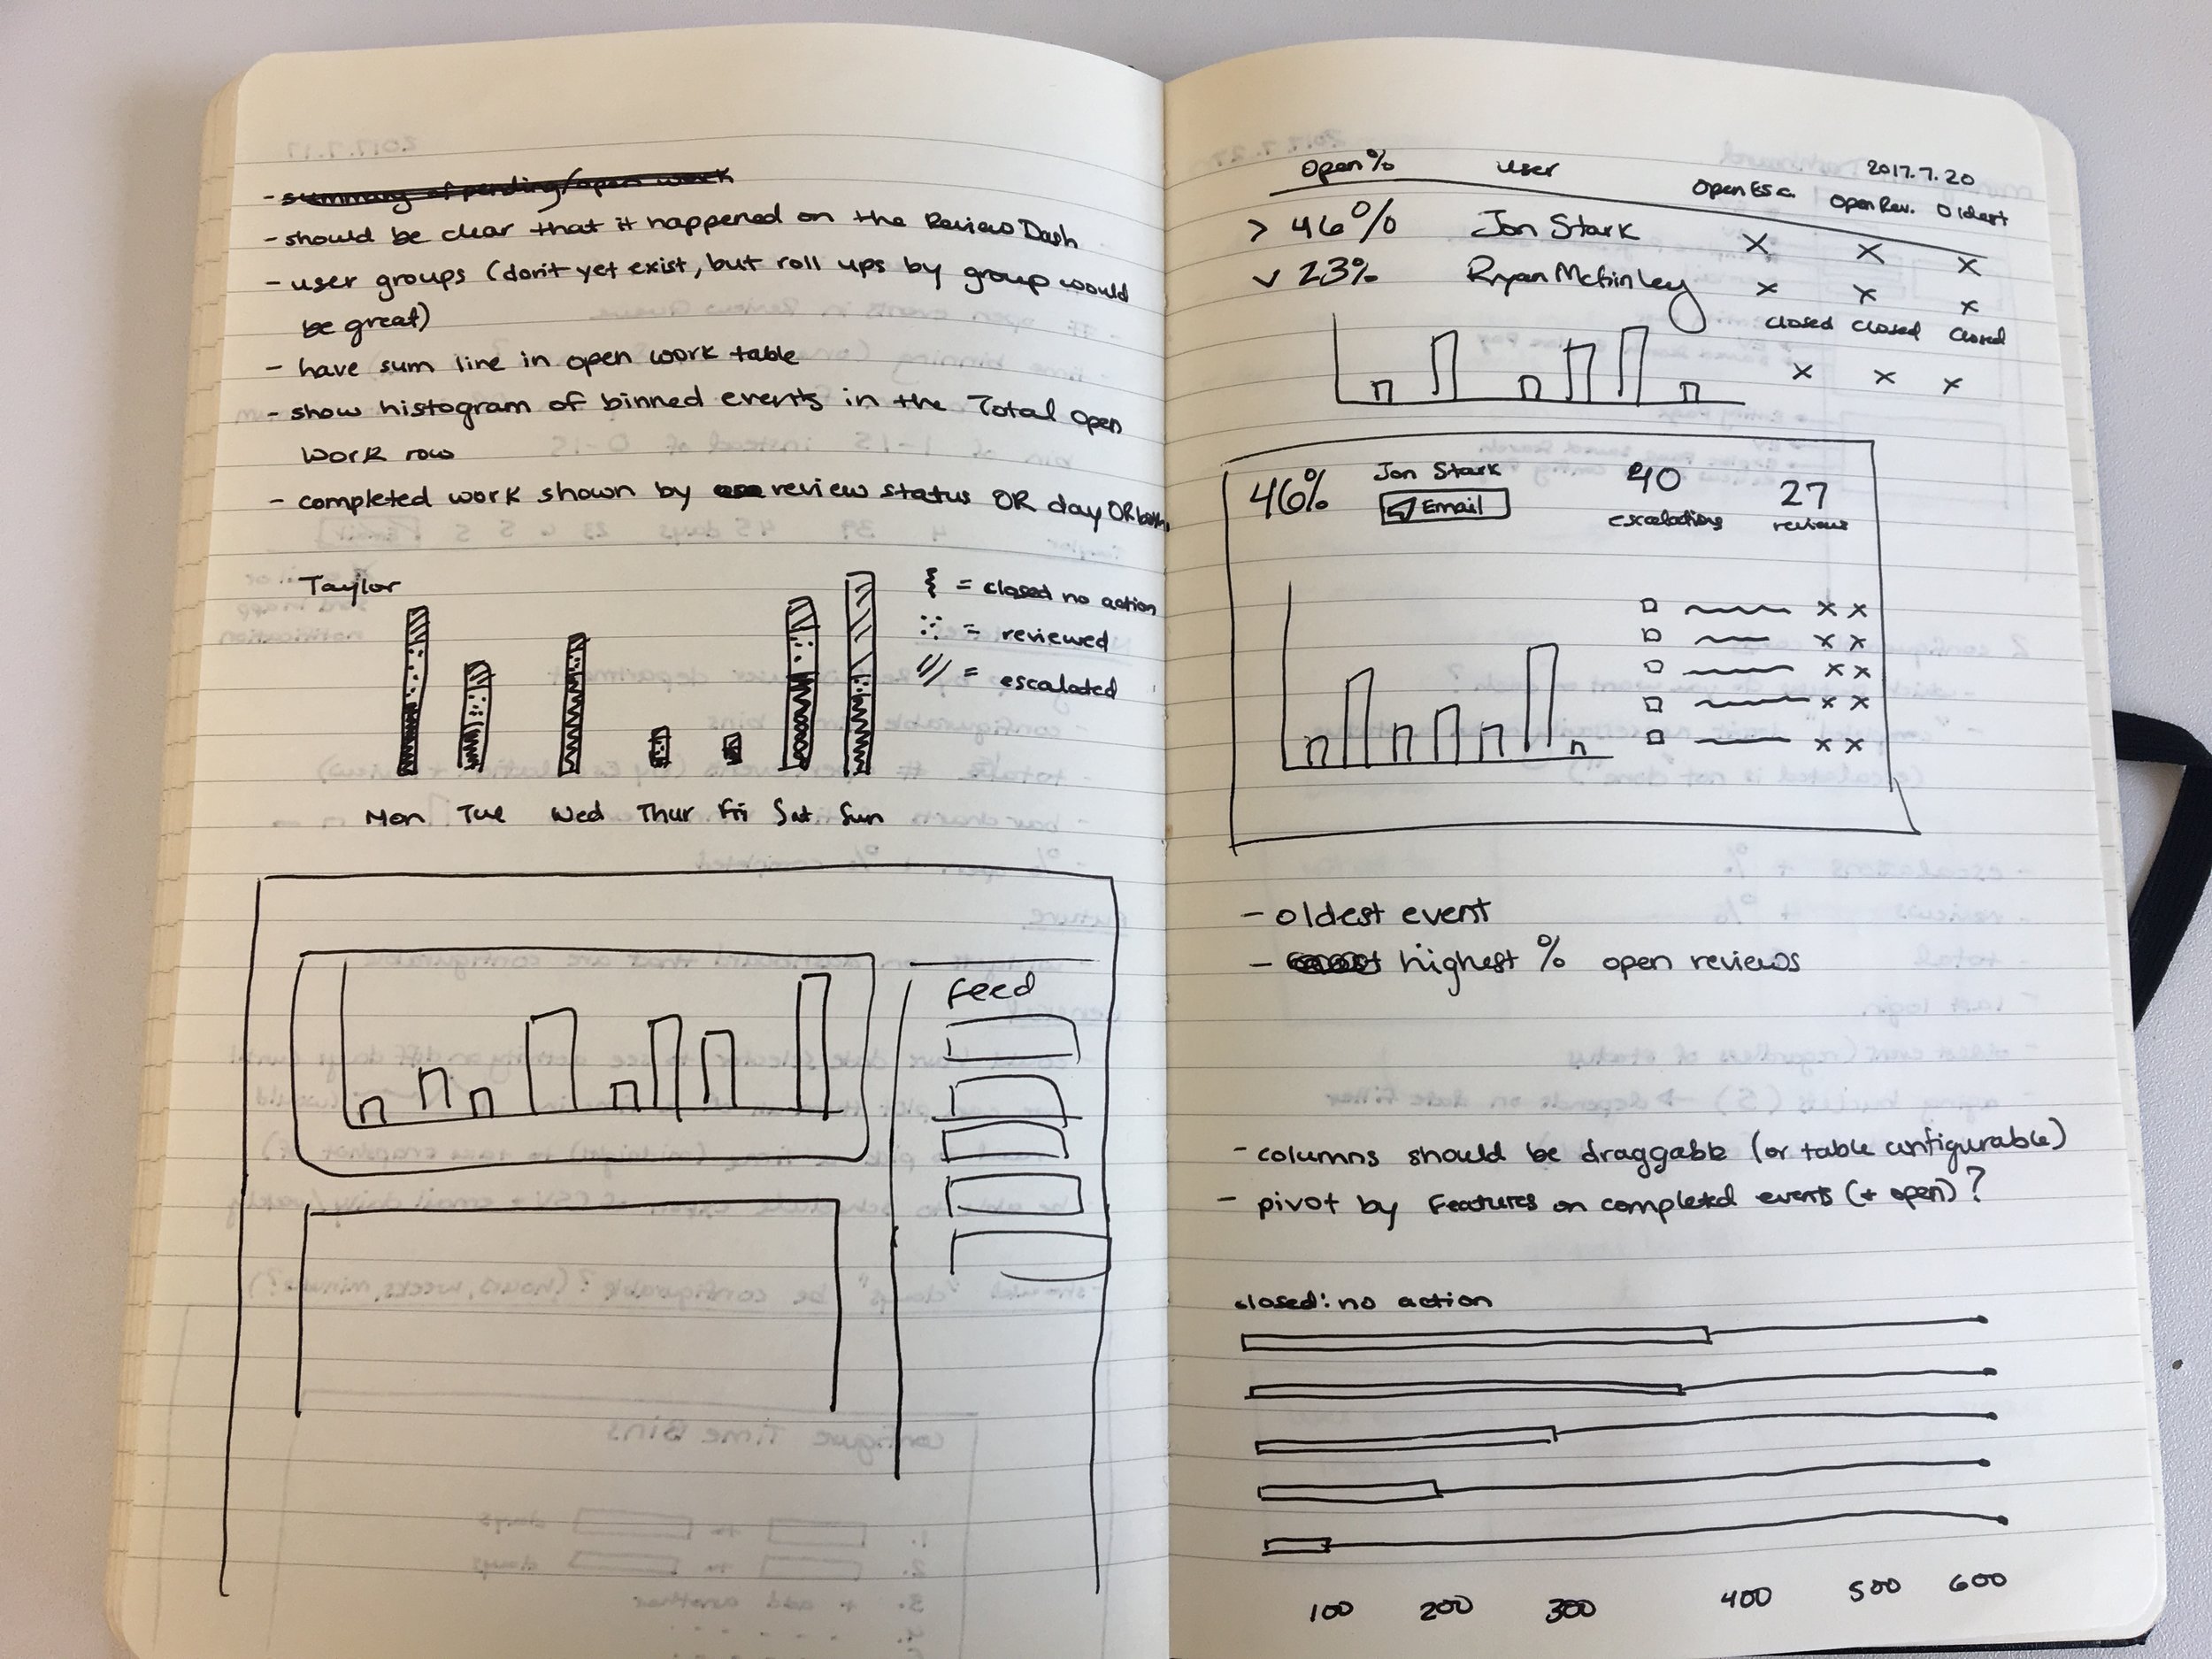 - summary of pending/open work
- should be clear that it happened on the Review Dash
- user groups (don't yet exist, but roll ups by group would
be great)
- have sum line in open work table
- show histogram of binned events in the Total Open
Work row
- completed work shown by review status OR day OR both
Taylor
= closed no action
= reviewed
= escalated
Mon Tue Wed Thur Fri Sat Sun
Feed
2017.7.20
Open % User Open Esc. Open Rev. Oldest
> 46% Jon Stark x x x
v 23% Ryan McGinley x x x
closed closed closed
x x x
46% Jon Stark 40 27
Email escalations reviews
x x
x x
x x
x x
x x
- oldest event
- highest % open reviews
- columns should be draggable (or table configurable)
- pivot by Features on completed events (+ open)?
closed: no action
100 200 300 400 500 600